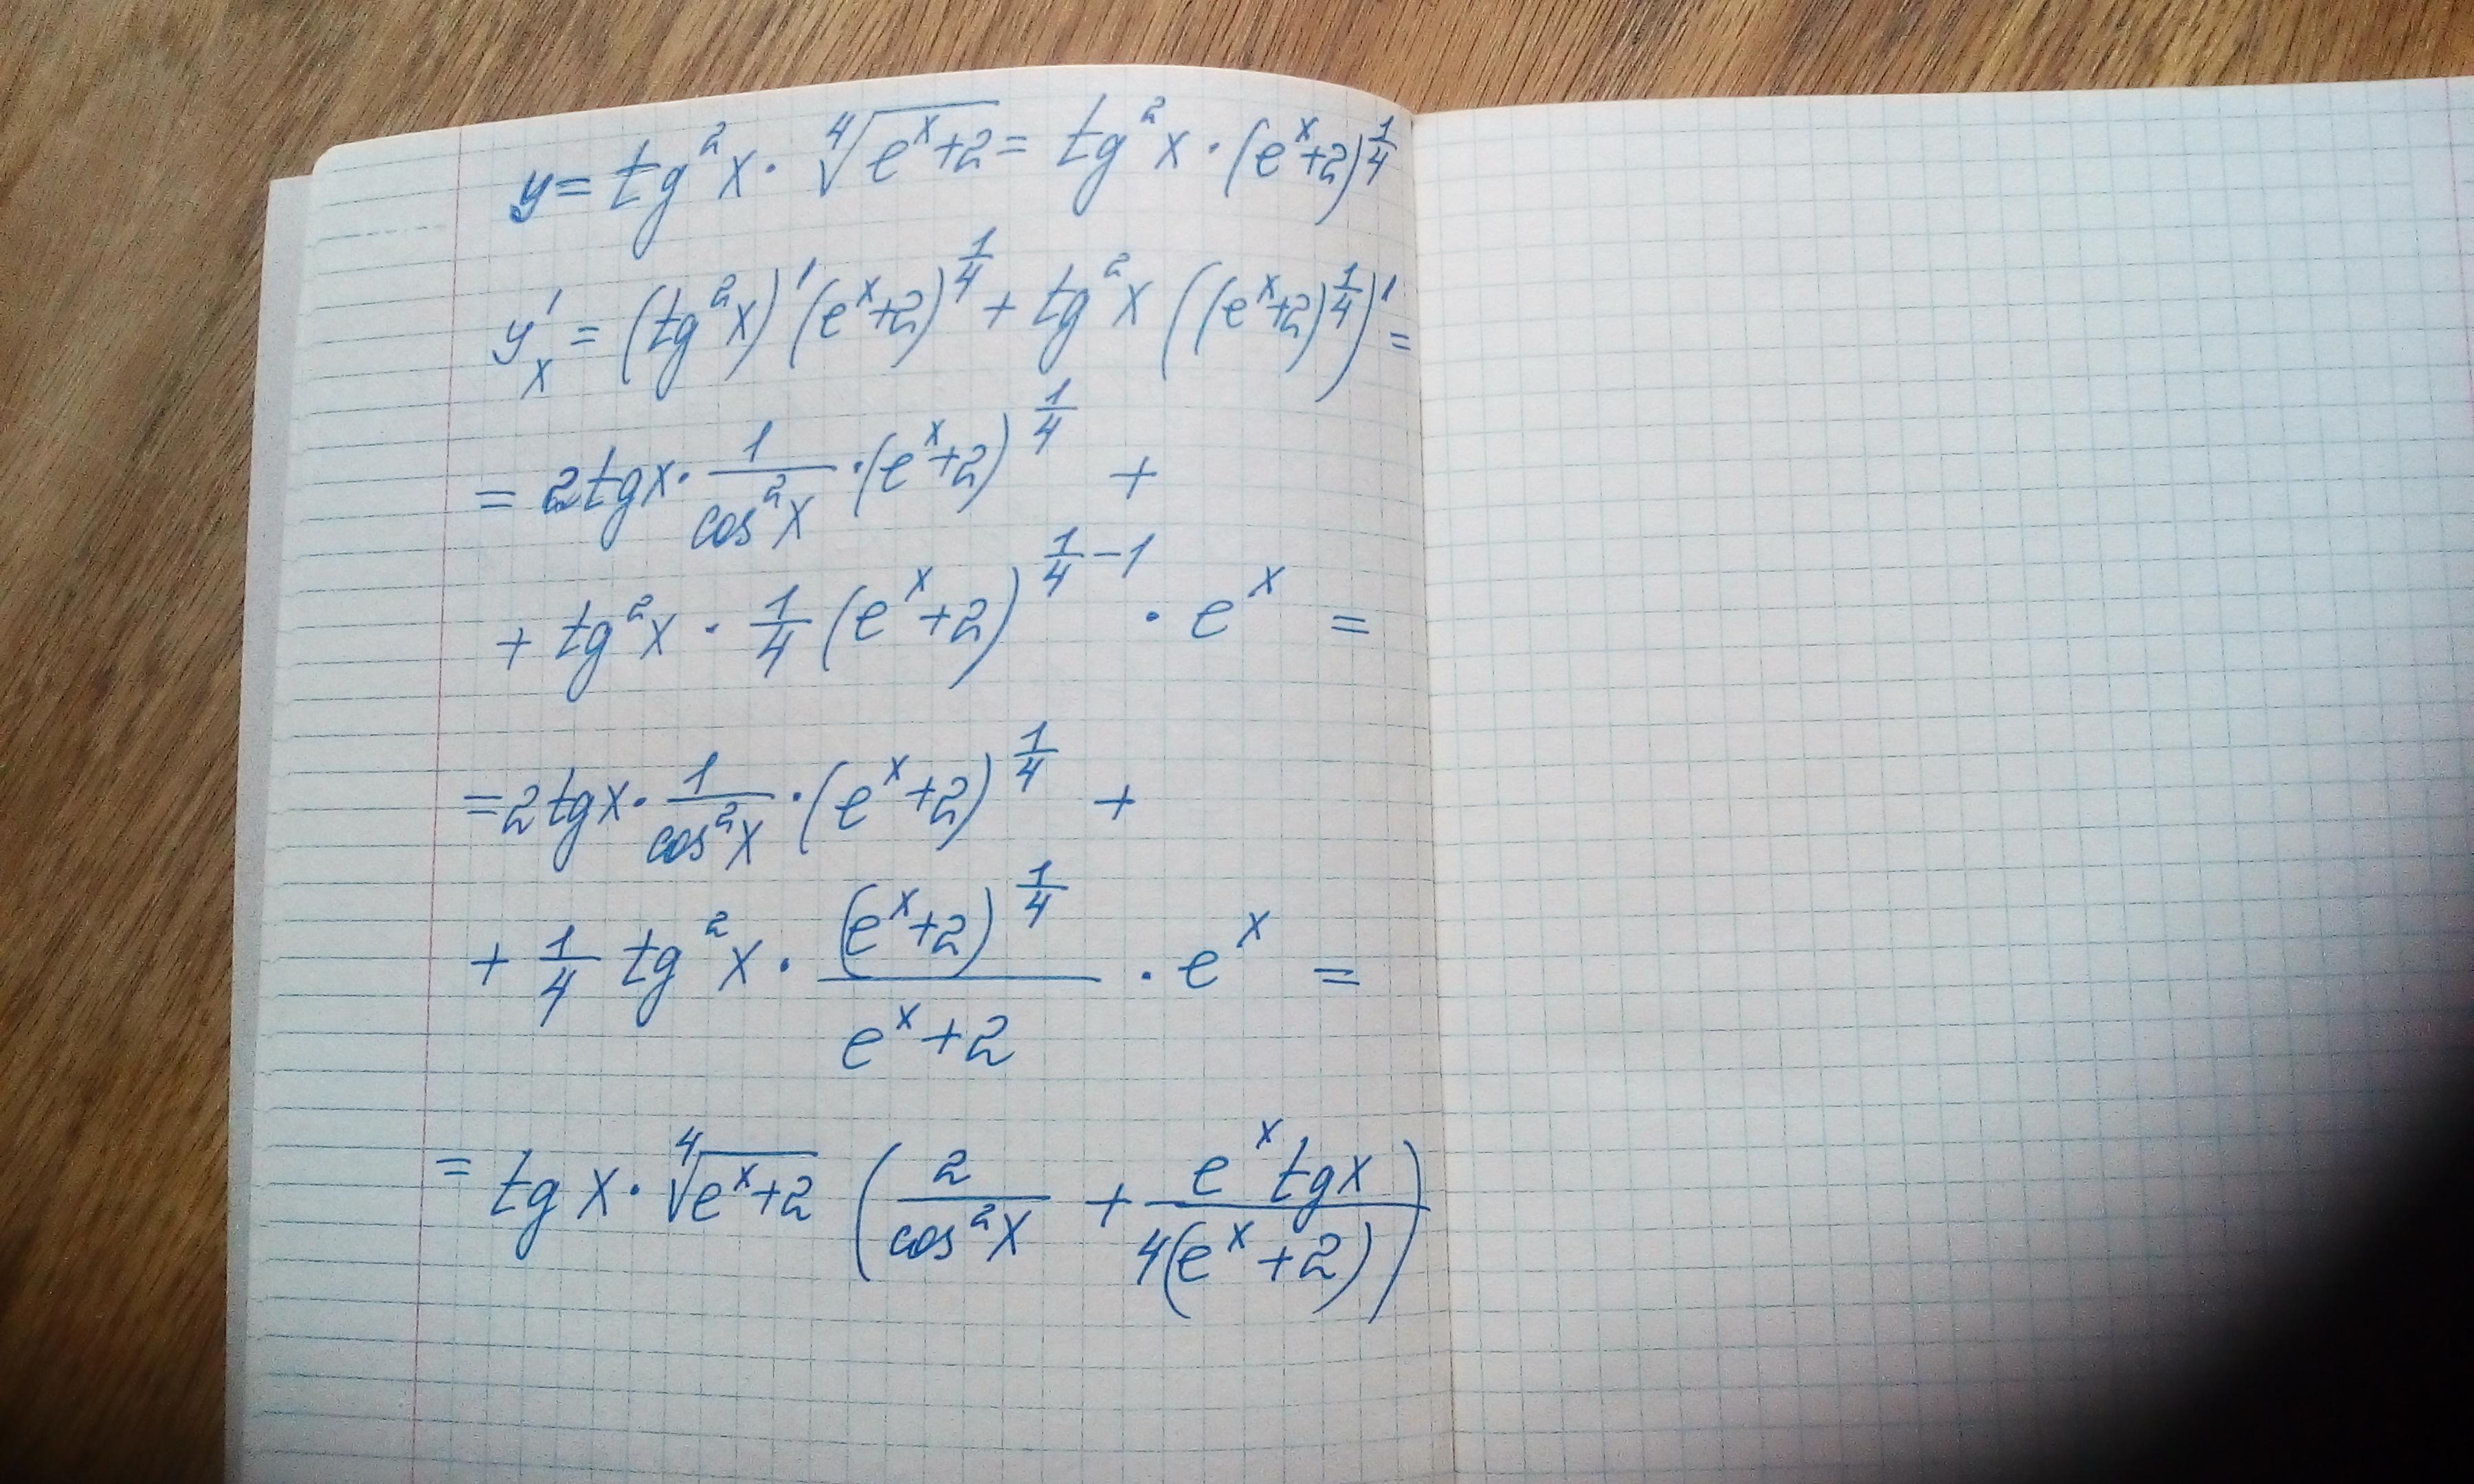 y = tg²x · ⁴√(eˣ+2) = tg²x · (eˣ+2)^(1/4)
y'ₓ = (tg²x)' (eˣ+2)^(1/4) + tg²x ((eˣ+2)^(1/4))' =
= 2tgx · 1/cos²x · (eˣ+2)^(1/4) +
+ tg²x · 1/4 (eˣ+2)^(1/4 − 1) · eˣ =
= 2tgx · 1/cos²x · (eˣ+2)^(1/4) +
+ 1/4 tg²x · (eˣ+2)^(1/4)/(eˣ+2) · eˣ =
= tgx · ⁴√(eˣ+2) (2/cos²x + eˣtgx/4(eˣ+2))